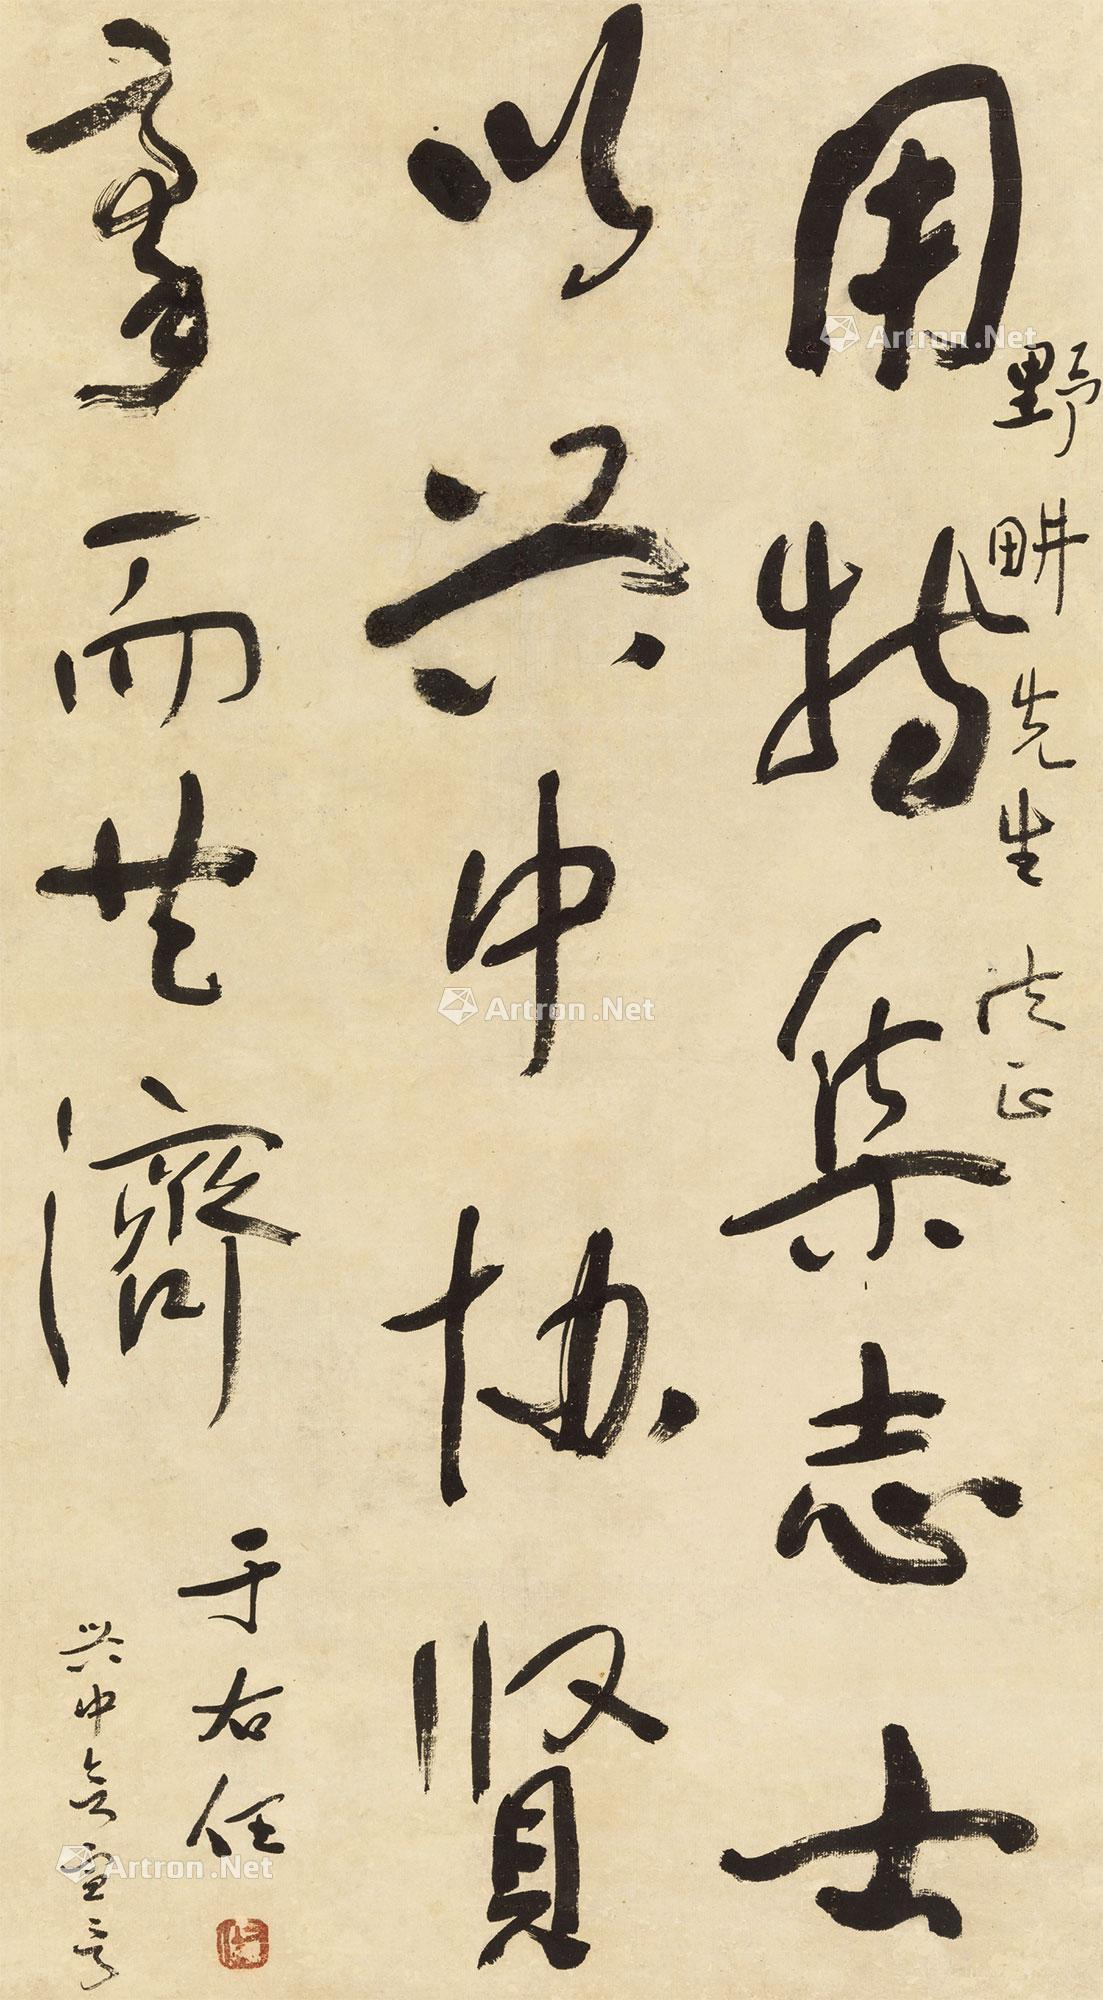 野畊先生法正
用特集志士
以興中協賢
豪而共濟
于右任
興中會宣言
Artron.Net
Artron.Net
Artron.Net